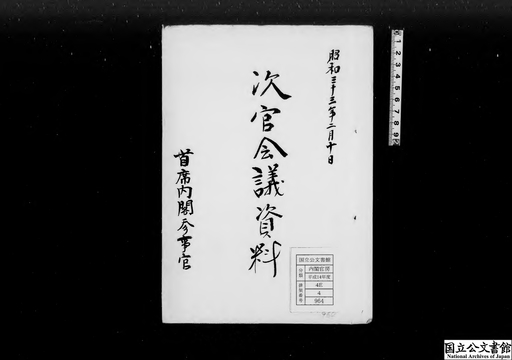 昭和三十三年二月十日
次官会議資料
首席内閣参事官
国立公文書館
分類
内閣官房
平成14年度
4E
排架番号
4
964
国立公文書館
National Archives of Japan